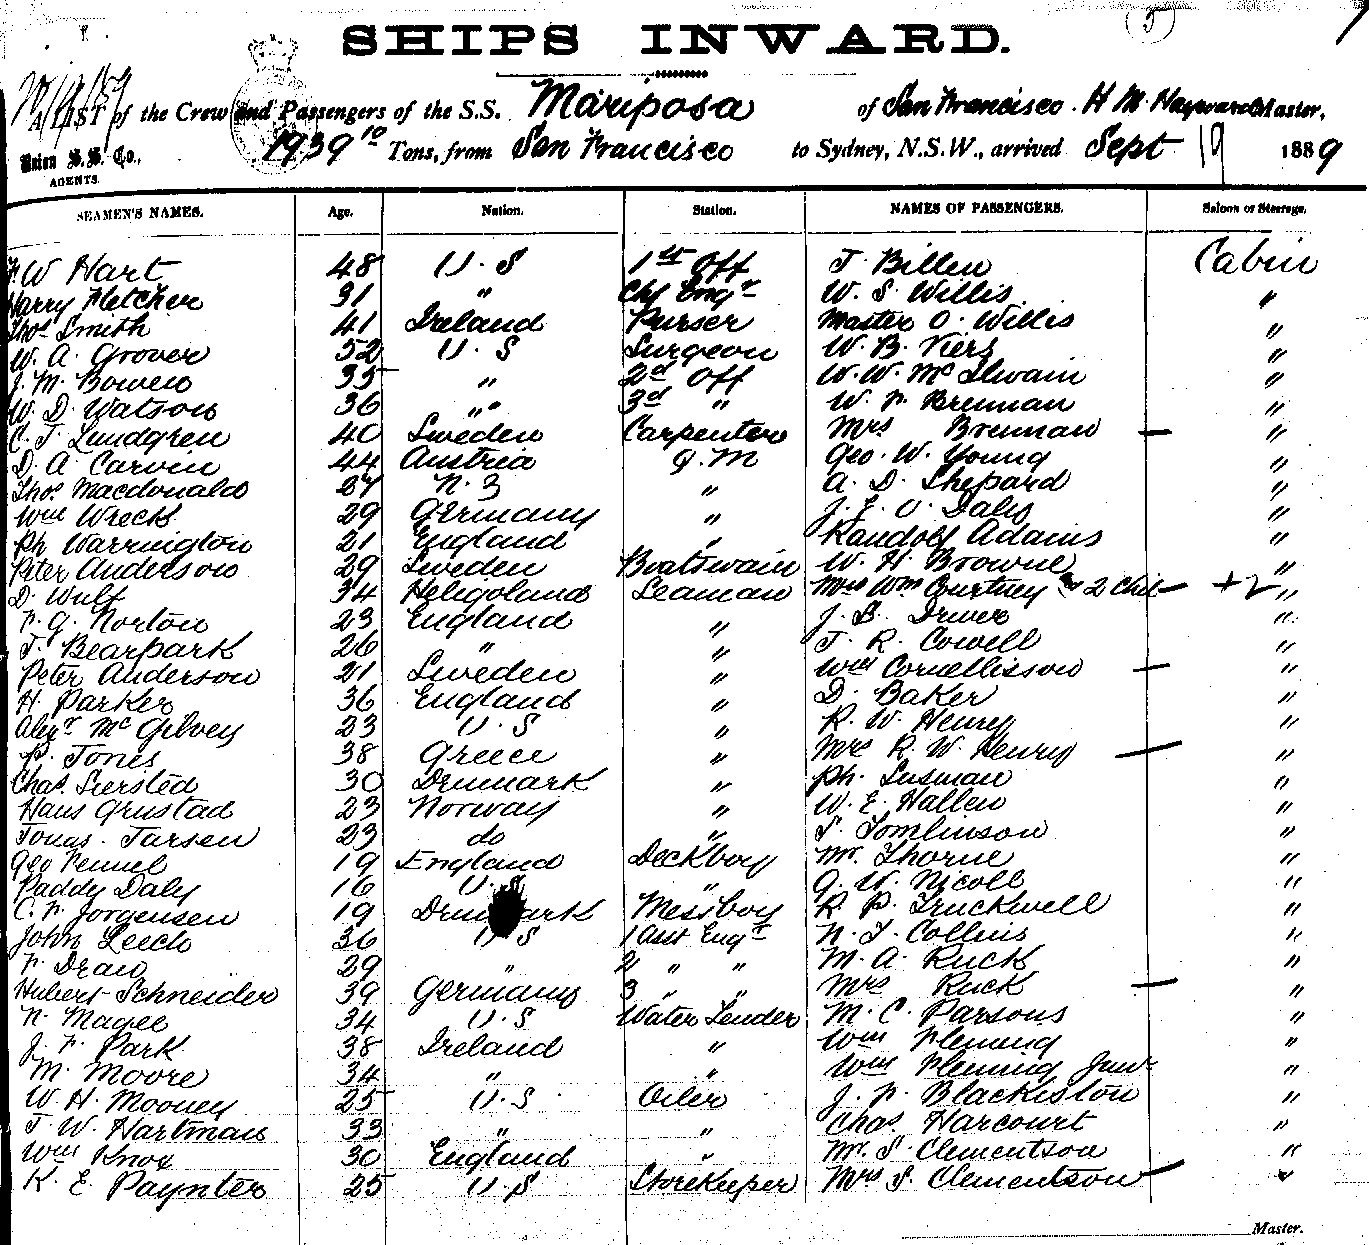 5
SHIPS INWARD.
A LIST of the Crew and Passengers of the S.S. Mariposa of San Francisco. H M. Hayward Master,
Union S.S. Co., AGENTS. 1939 10 Tons, from San Francisco to Sydney, N.S.W., arrived Sept 19 1889
SEAMEN'S NAMES. Age. Nation. Station. NAMES OF PASSENGERS. Saloon or Steerage.
F. W Hart 48 U. S 1st Off T. Billen Cabin
Harry Fletcher 31 " Chf Engr W. S. Willis "
Thos Smith 41 Ireland Purser Master O. Willis "
W. A. Grover 52 U. S Surgeon W. B. Viers "
J. M. Bowen 35 " 2nd Off W. W. McIlwain "
W. D. Watson 36 " 3rd " W. F. Brennan "
C. J. Lundgren 40 Sweden Carpenter Mrs Brennan — "
D. A. Carvin 44 Austria Q. M Geo. W. Young "
Thos Macdonald 27 N. Z " A. D. Shepard "
Wm Wreck 29 Germany " J. E. O. Daly "
Ph Warrington 21 England " Randolf Adams "
Peter Anderson 29 Sweden Boatswain W. H. Browne "
D. Wulf 34 Heligoland Seaman Mrs Wm Courtney & 2 Chil — + 2 "
F. G. Norton 23 England " J. B. Driver "
T. Bearpark 26 " " T. R. Cowell "
Peter Anderson 21 Sweden " Wm Cornellisson — "
H. Parker 36 England " D. Baker "
Alexr McGilvey 23 U. S " R. W. Henry "
P. Jones 38 Greece " Mrs R. W. Henry — "
Chas. Siersted 30 Denmark " Ph. Susman "
Hans Grustad 23 Norway " W. E. Hallen "
Jonas. Tarsen 23 do " S. Tomlinson "
Geo Pennel 19 England Deckboy Mr. Thorne "
Paddy Daly 16 U. S " G. W. Nicoll "
C. F. Jorgensen 19 Denmark Messboy R. P. Truckwell "
John Leech 36 U S 1 Asst Engr N. T. Collins "
F. Draw 29 " 2 " " M. A. Ruck "
Hubert Schneider 39 Germany 3 " " Mrs Ruck — "
N. Magee 34 U. S Water Tender M. C. Parsons "
J. F. Park 38 Ireland " Wm Fleming "
M. Moore 34 " " Wm Fleming Junr "
W. H. Mooney 25 U. S Oiler J. F. Blackiston "
T. W. Hartman 33 " " Chas. Harcourt "
Wm Knox 30 England " Mr. S. Clementson "
K. E. Paynter 25 U. S Storekeeper Mrs S. Clementson — "
Master.